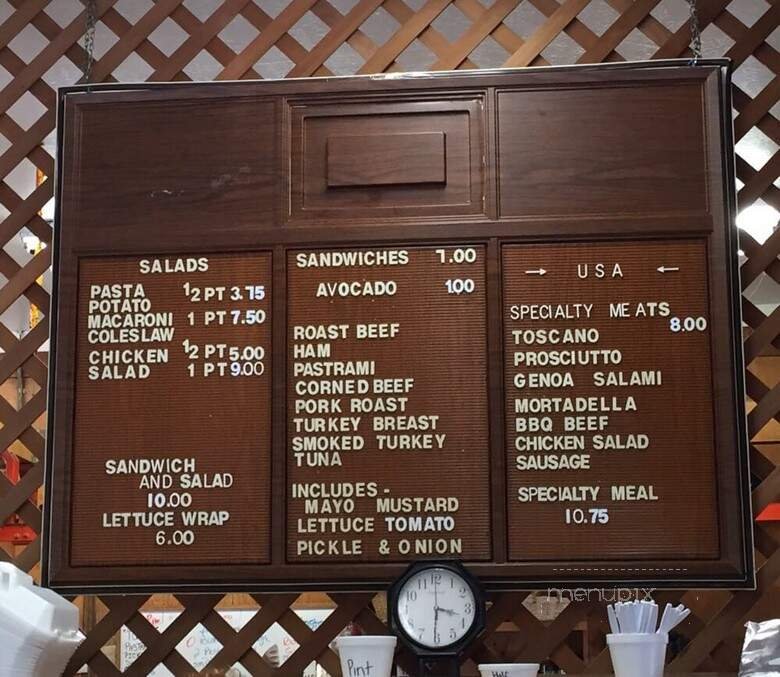 SALADS
PASTA 1/2 PT 3.75
POTATO
MACARONI 1 PT 7.50
COLESLAW
CHICKEN 1/2 PT 5.00
SALAD 1 PT 9.00
SANDWICH
AND SALAD
10.00
LETTUCE WRAP
6.00
SANDWICHES 7.00
AVOCADO 1.00
ROAST BEEF
HAM
PASTRAMI
CORNED BEEF
PORK ROAST
TURKEY BREAST
SMOKED TURKEY
TUNA
INCLUDES -
MAYO MUSTARD
LETTUCE TOMATO
PICKLE & ONION
→ USA ←
SPECIALTY MEATS
8.00
TOSCANO
PROSCIUTTO
GENOA SALAMI
MORTADELLA
BBQ BEEF
CHICKEN SALAD
SAUSAGE
SPECIALTY MEAL
10.75
menupix
Pint